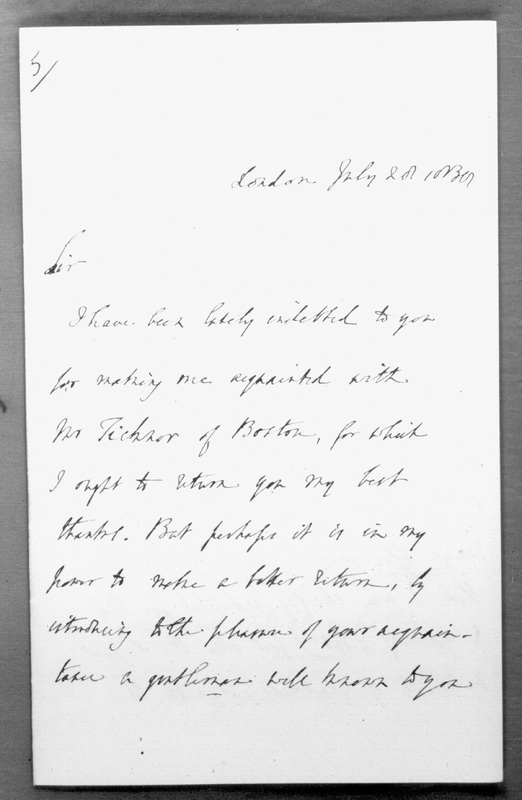 5/
London July 28 1838
Sir
I have been lately indebted to you
for making me acquainted with
Mr Ticknor of Boston, for which
I ought to return you my best
thanks. But perhaps it is in my
power to make a better return, by
introducing to the pleasure of your acquain-
tance a gentleman well known to you